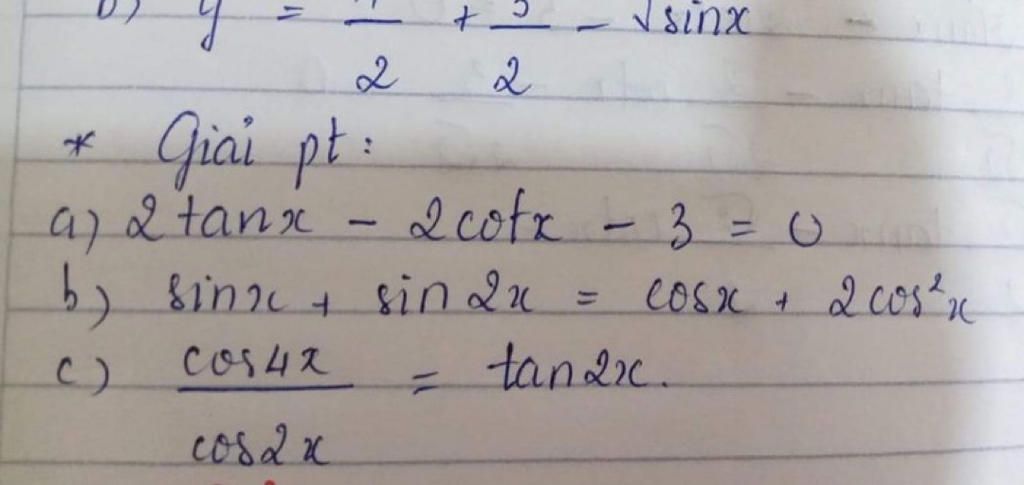 b) y = 1/2 + 3/2 - √sinx
* Giải pt:
a) 2tanx - 2cotx - 3 = 0
b) sinx + sin2x = cosx + 2cos²x
c) cos4x/cos2x = tan2x.